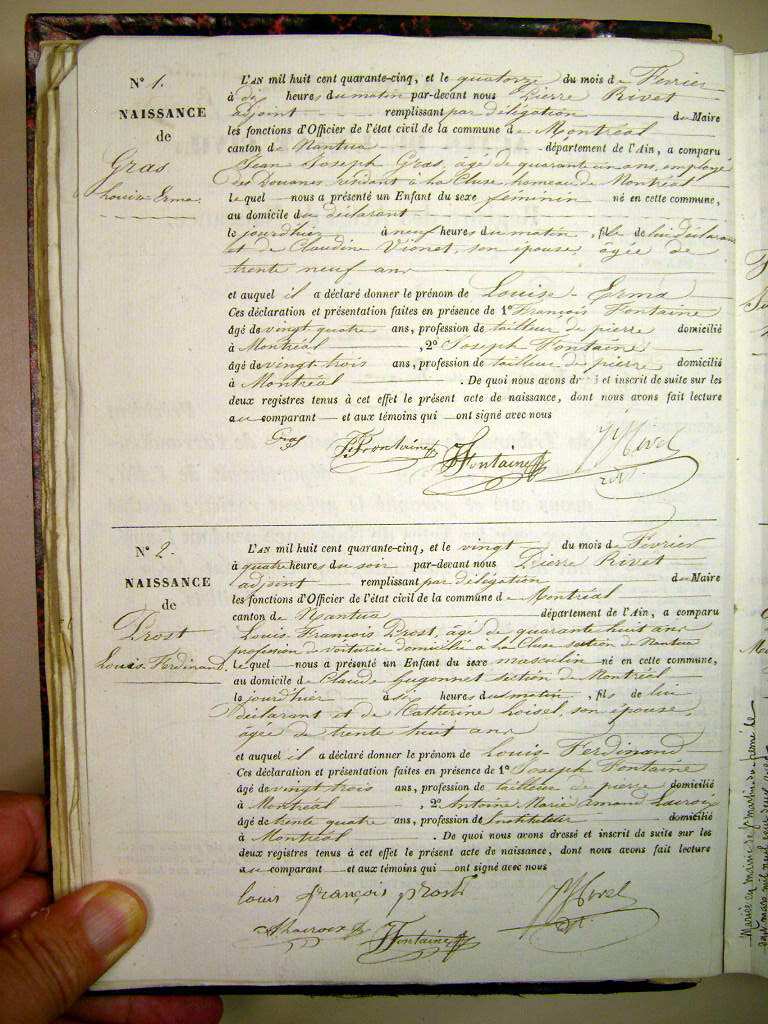 N° 1.
NAISSANCE
de
Gras
Louise-Erma.
L'AN mil huit cent quarante-cinq, et le quatorze du mois de Février
à dix heures du matin par-devant nous Pierre Rivet
adjoint remplissant par délégation du Maire
les fonctions d'Officier de l'état civil de la commune de Montréal
canton de Nantua département de l'Ain, a comparu
Jean Joseph Gras, âgé de quarante un ans, employé
des Douanes résidant à la Cluse, hameau de Montréal
lequel nous a présenté un Enfant du sexe féminin né en cette commune,
au domicile du déclarant
le jourdhier à neuf heures du matin, fille de lui déclarant
et de Claudine Vionet, son épouse, âgée de
trente neuf ans
et auquel il a déclaré donner le prénom de Louise-Erma
Ces déclaration et présentation faites en présence de 1° François Fontaine
âgé de vingt quatre ans, profession de tailleur de pierre domicilié
à Montréal, 2° Joseph Fontaine
âgé de vingt-trois ans, profession de tailleur de pierre domicilié
à Montréal. De quoi nous avons dressé et inscrit de suite sur les
deux registres tenus à cet effet le présent acte de naissance, dont nous avons fait lecture
au comparant et aux témoins qui ont signé avec nous
Gras FFontaine JFontaine Rivet
N° 2.
NAISSANCE
de
Prost
Louis Ferdinand.
L'AN mil huit cent quarante-cinq, et le vingt du mois de Février
à quatre heures du soir par-devant nous Pierre Rivet
adjoint remplissant par délégation du Maire
les fonctions d'Officier de l'état civil de la commune de Montréal
canton de Nantua département de l'Ain, a comparu
Louis François Prost, âgé de quarante huit ans
profession de voiturier domicilié à la Cluse section de Nantua
lequel nous a présenté un Enfant du sexe masculin né en cette commune,
au domicile de Claude Gugonnet section de Montréal
le jourdhier à six heures du matin, fils de lui
déclarant et de Catherine Loisel, son épouse,
âgée de trente huit ans
et auquel il a déclaré donner le prénom de Louis-Ferdinand
Ces déclaration et présentation faites en présence de 1° Joseph Fontaine
âgé de vingt trois ans, profession de tailleur de pierre domicilié
à Montréal, 2° Antoine Marie Amand Lacroix
âgé de trente quatre ans, profession de Instituteur domicilié
à Montréal. De quoi nous avons dressé et inscrit de suite sur les
deux registres tenus à cet effet le présent acte de naissance, dont nous avons fait lecture
au comparant et aux témoins qui ont signé avec nous
louis françois prost Rivet
ALacroix JFontaine